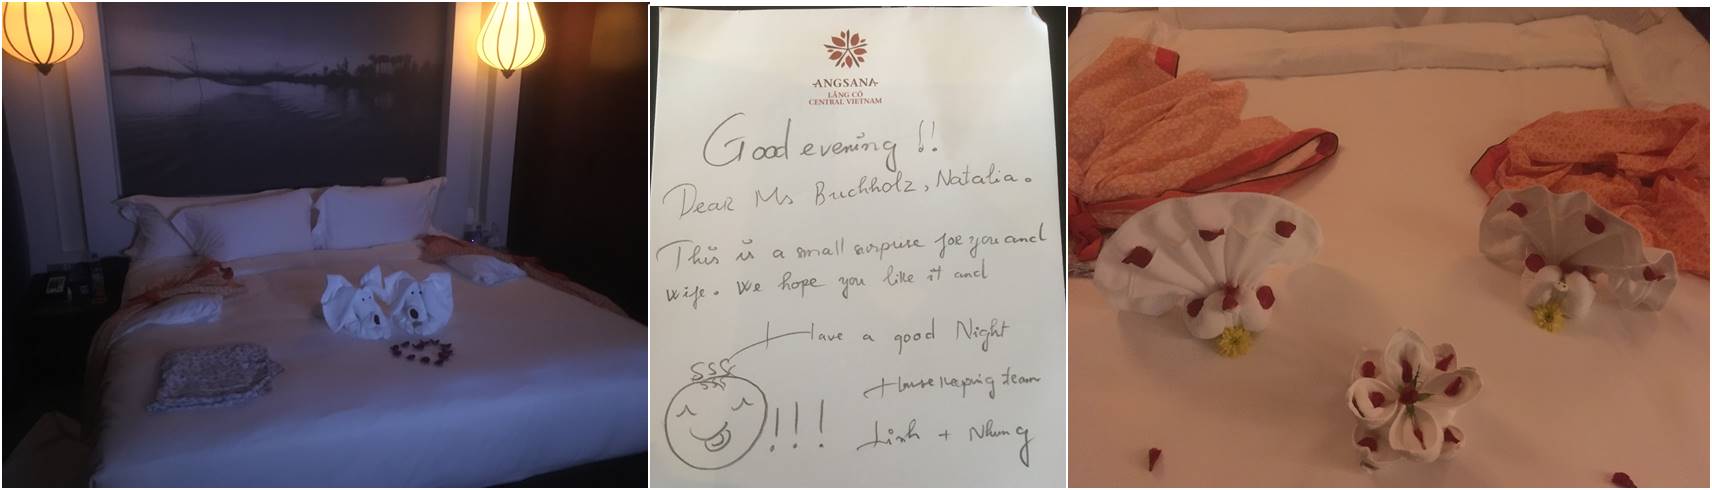 ANGSANA
LĂNG CÔ
CENTRAL VIETNAM
Good evening !!
Dear Ms Buchholz, Natalia.
This is a small surprise for you and
wife. We hope you like it and
Have a good Night
sss
sss
!!!
Housekeeping team
Linh + Nhung